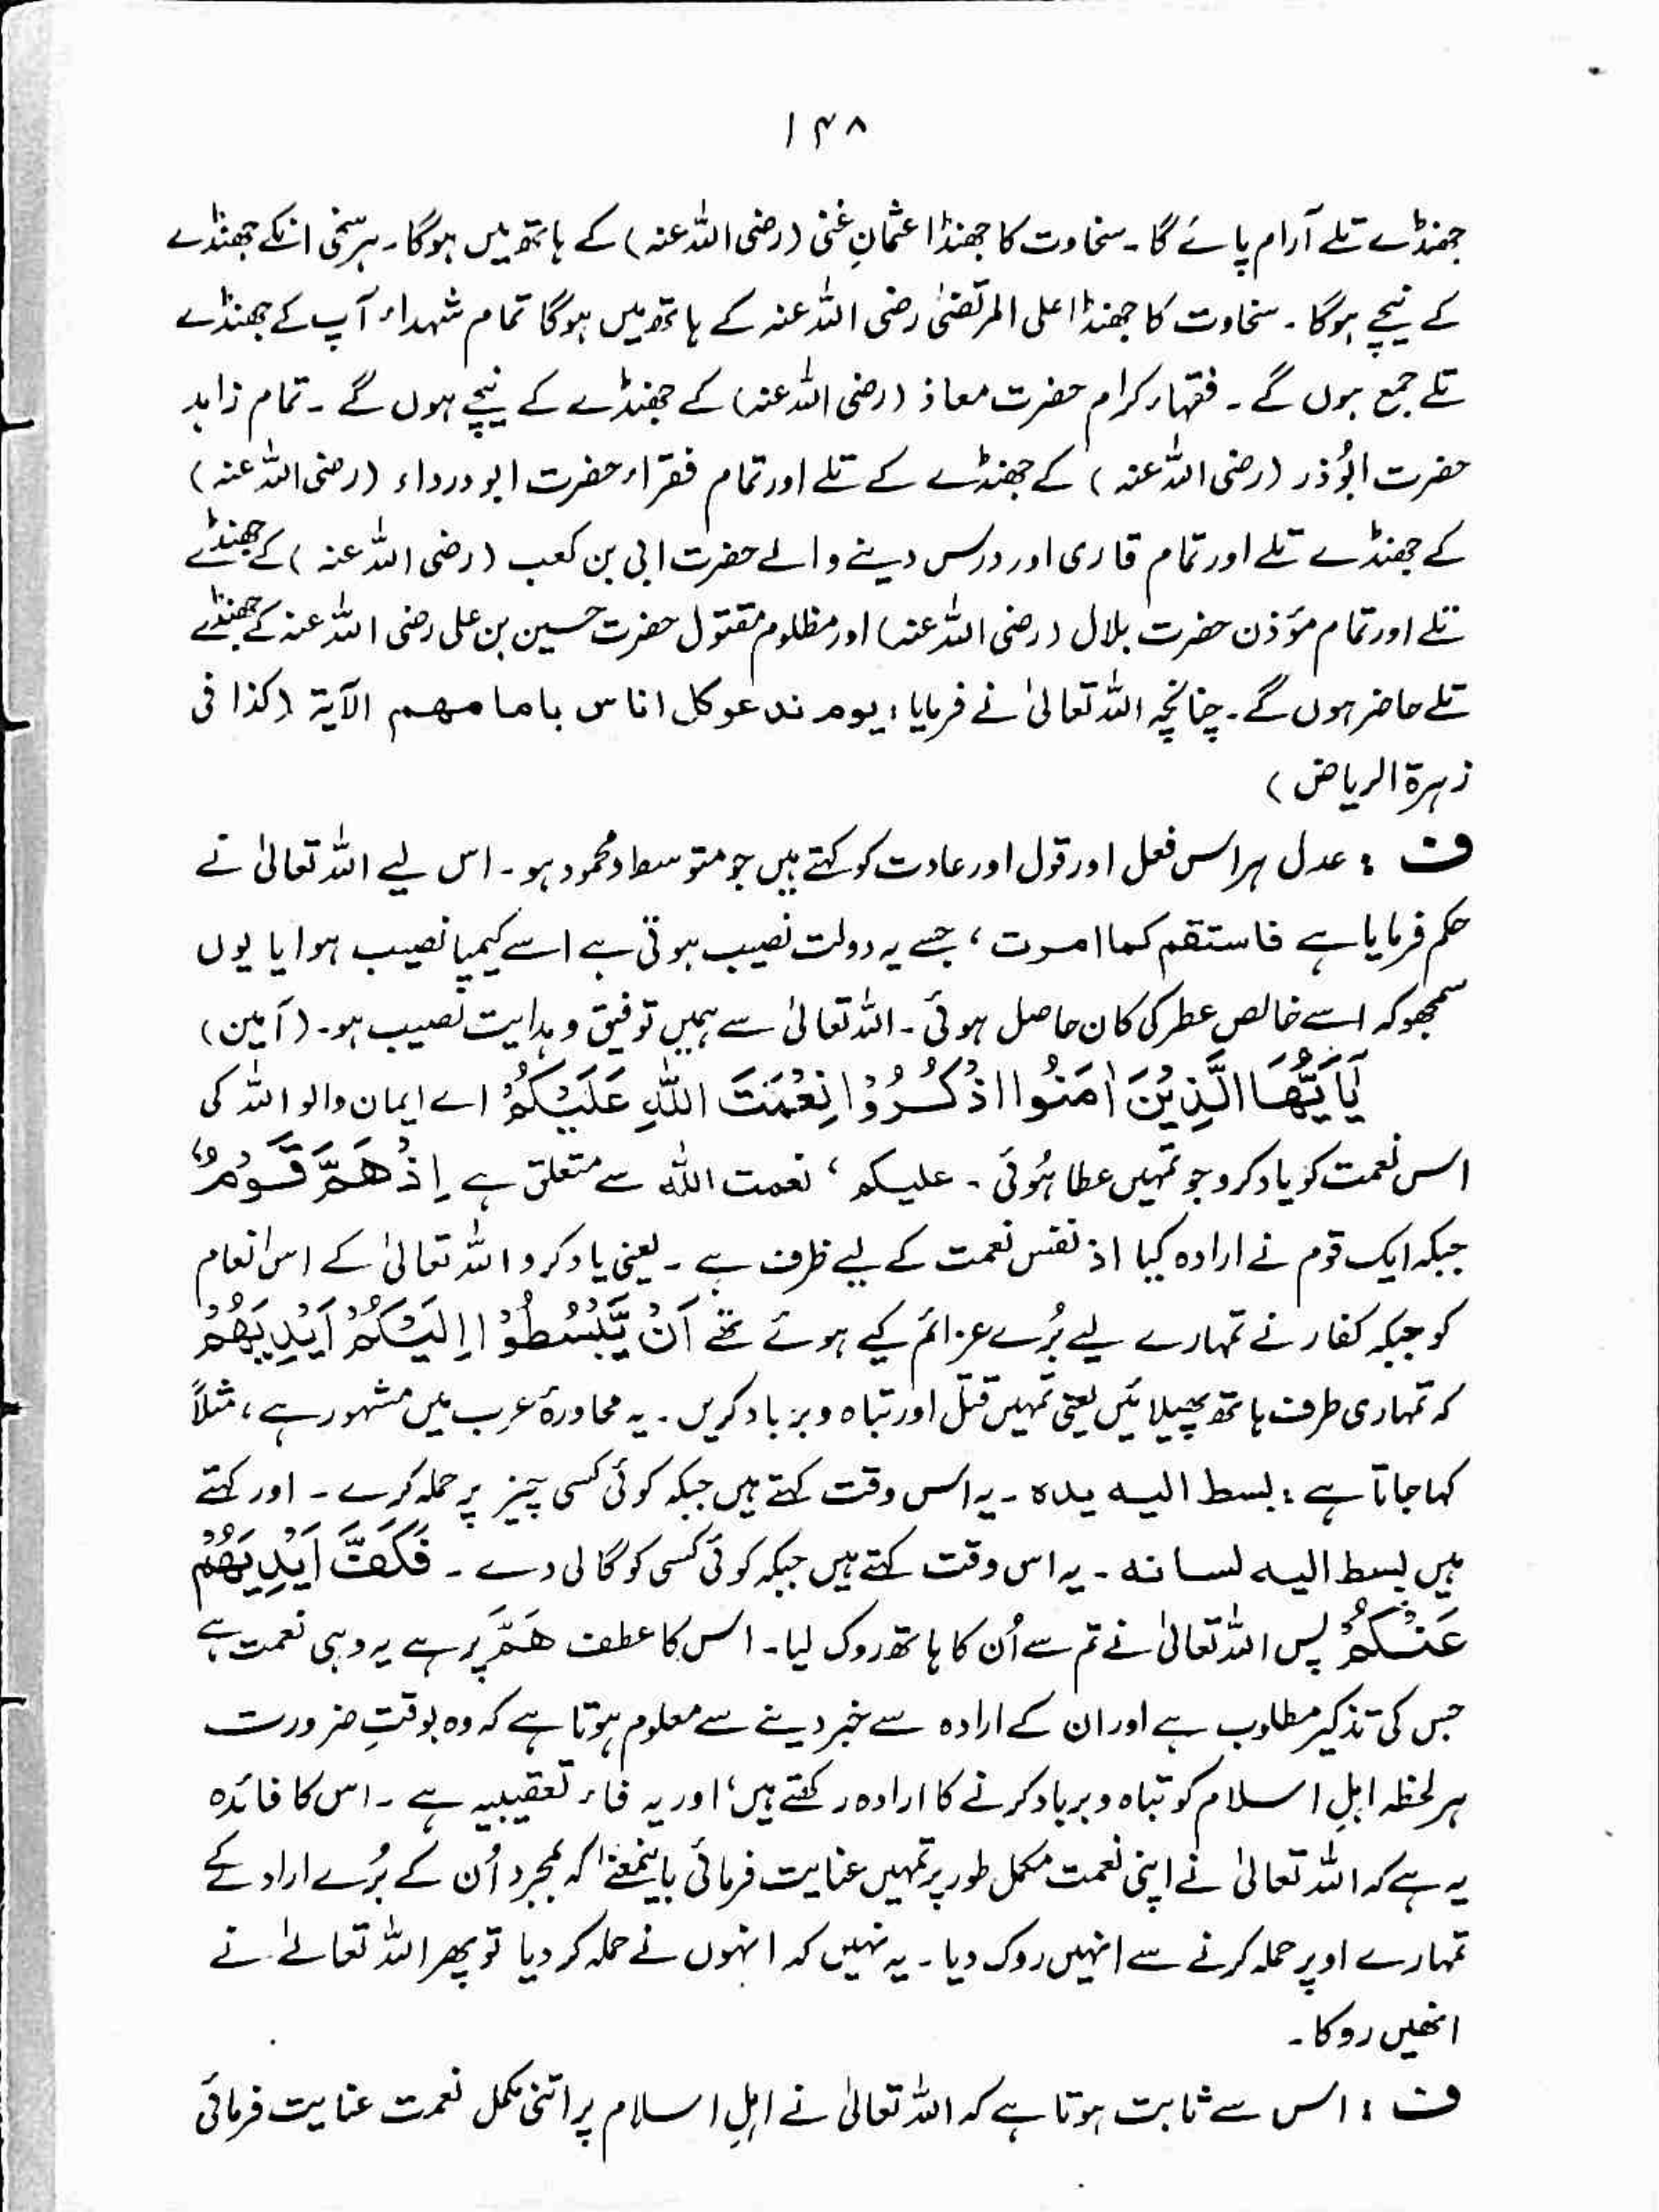 ۱۴۸
جھنڈے تلے آرام پائے گا۔ سخاوت کا جھنڈا عثمانِ غنی (رضی اللہ عنہ) کے ہاتھ میں ہوگا۔ ہر سخی انکے جھنڈے
کے نیچے ہوگا۔ سخاوت کا جھنڈا علی المرتضیٰ رضی اللہ عنہ کے ہاتھ میں ہوگا تمام شہداء آپ کے جھنڈے
تلے جمع ہوں گے۔ فقہاء کرام حضرت معاذ (رضی اللہ عنہ) کے جھنڈے کے نیچے ہوں گے۔ تمام زاہد
حضرت ابُوذر (رضی اللہ عنہ) کے جھنڈے کے تلے اور تمام فقراء حضرت ابو درداء (رضی اللہ عنہ)
کے جھنڈے تلے اور تمام قاری اور درس دینے والے حضرت ابی بن کعب (رضی اللہ عنہ) کے جھنڈے
تلے اور تمام مؤذن حضرت بلال (رضی اللہ عنہ) اور مظلوم مقتول حضرت حسین بن علی رضی اللہ عنہ کے جھنڈے
تلے حاضر ہوں گے۔ چنانچہ اللہ تعالیٰ نے فرمایا: یوم ندعو کل اناس بامامھم الآیۃ (کذا فی
زہرۃ الریاض)
ف : عدل ہر اس فعل اور قول اور عادت کو کہتے ہیں جو متوسط و محمود ہو۔ اس لیے اللہ تعالیٰ نے
حکم فرمایا ہے فاستقم کما امرت، جسے یہ دولت نصیب ہوتی ہے اسے کیمیا نصیب ہوا یا یوں
سمجھو کہ اسے خالص عطر کی کان حاصل ہوئی۔ اللہ تعالیٰ سے ہمیں توفیق و ہدایت نصیب ہو۔ (آمین)
يٰٓاَيُّهَا الَّذِيْنَ اٰمَنُوا اذْكُرُوْا نِعْمَتَ اللّٰهِ عَلَيْكُمْ اے ایمان والو اللہ کی
اس نعمت کو یاد کرو جو تمہیں عطا ہُوئی۔ علیکم، نعمت اللّٰہ سے متعلق ہے اِذْ هَمَّ قَوْمٌ
جبکہ ایک قوم نے ارادہ کیا اذ نفس نعمت کے لیے ظرف ہے۔ یعنی یاد کرو اللہ تعالیٰ کے اس انعام
کو جبکہ کفار نے تمہارے لیے بُرے عزائم کیے ہوئے تھے اَنْ يَّبْسُطُوْٓا اِلَيْكُمْ اَيْدِيَهُمْ
کہ تمہاری طرف ہاتھ پھیلائیں یعنی تمہیں قتل اور تباہ و برباد کریں۔ یہ محاورۂ عرب میں مشہور ہے، مثلاً
کہا جاتا ہے: بسط الیہ یدہ۔ یہ اس وقت کہتے ہیں جبکہ کوئی کسی چیز پر حملہ کرے۔ اور کہتے
ہیں بسط الیہ لسانہ۔ یہ اس وقت کہتے ہیں جبکہ کوئی کسی کو گالی دے۔ فَكَفَّ اَيْدِيَهُمْ
عَنْكُمْ پس اللہ تعالیٰ نے تم سے اُن کا ہاتھ روک لیا۔ اس کا عطف هَمَّ پر ہے یہ وہی نعمت ہے
جس کی تذکیر مطلوب ہے اور ان کے ارادہ سے خبر دینے سے معلوم ہوتا ہے کہ وہ بوقتِ ضرورت
ہر لحظہ اہلِ اسلام کو تباہ و برباد کرنے کا ارادہ رکھتے ہیں، اور یہ فاء تعقیبیہ ہے۔ اس کا فائدہ
یہ ہے کہ اللہ تعالیٰ نے اپنی نعمت مکمل طور پر تمہیں عنایت فرمائی باینمعنےٰ کہ بمجرد اُن کے بُرے ارادے کے
تمہارے اوپر حملہ کرنے سے انہیں روک دیا۔ یہ نہیں کہ انہوں نے حملہ کر دیا تو پھر اللہ تعالےٰ نے
انھیں روکا۔
ف : اس سے ثابت ہوتا ہے کہ اللہ تعالیٰ نے اہلِ اسلام پر اتنی مکمل نعمت عنایت فرمائی